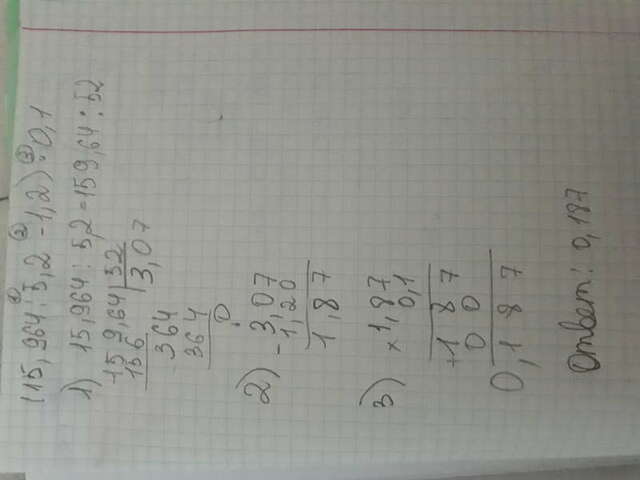 ① ② ③
(15,964 : 5,2 - 1,2) · 0,1
1) 15,964 : 5,2 = 159,64 : 52
159,64 | 52
156 3,07
364
364
0
2) - 3,07
1,20
1,87
3) × 1,87
0,1
+ 1 8 7
0 0
0,1 8 7
Ответ: 0,187